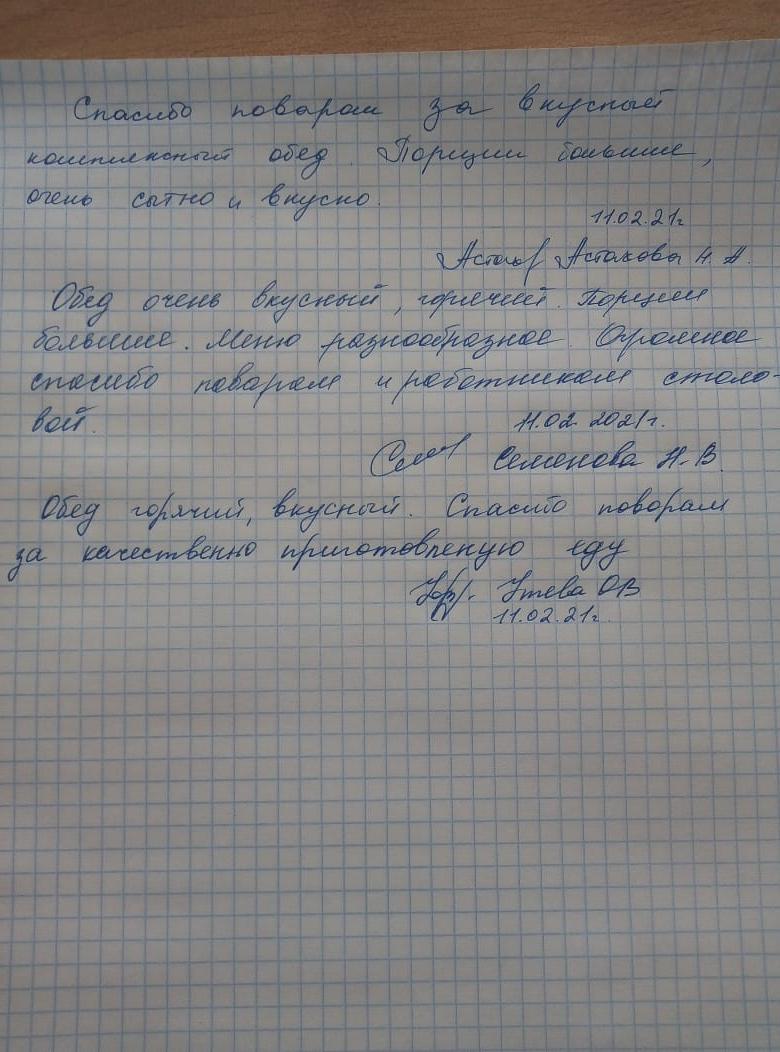 Спасибо поварам за вкусный
комплексный обед. Порции большие,
очень сытно и вкусно.
11.02.21г
Астахова Н. А.
Обед очень вкусный, горячий. Порции
большие. Меню разнообразное. Огромное
спасибо поварам и работникам столо-
вой.
11.02 2021г.
Семенова Н.В.
Обед горячий, вкусный. Спасибо поварам
за качественно приготовленую еду
ОВ
11.02.21г.